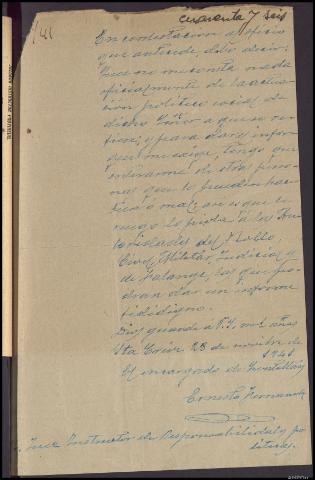 Cuarenta y seis
141
En contestacion al oficio
que antecede, debo decir:
Que no me consta nada
oficialmente de la actua-
ción político social de
dicho Señor a que se re-
fiere; y para dar informe
que me exige, tengo que
ordenarme de otras perso-
nas que lo puedan hacer
bien o mal, asi es que le
ruego lo pida a las Au-
toridades del Pueblo,
Civil, Militar, Judicial y
de Falange, las que po-
dran dar un informe
fidedigno.
Dios guarde a V.S. mil años
Sta Cruz 28 de novibre de
1941
El encargado de
Ernesto Fernandez
Juez Instructor de Responsabilidades po
liticas.